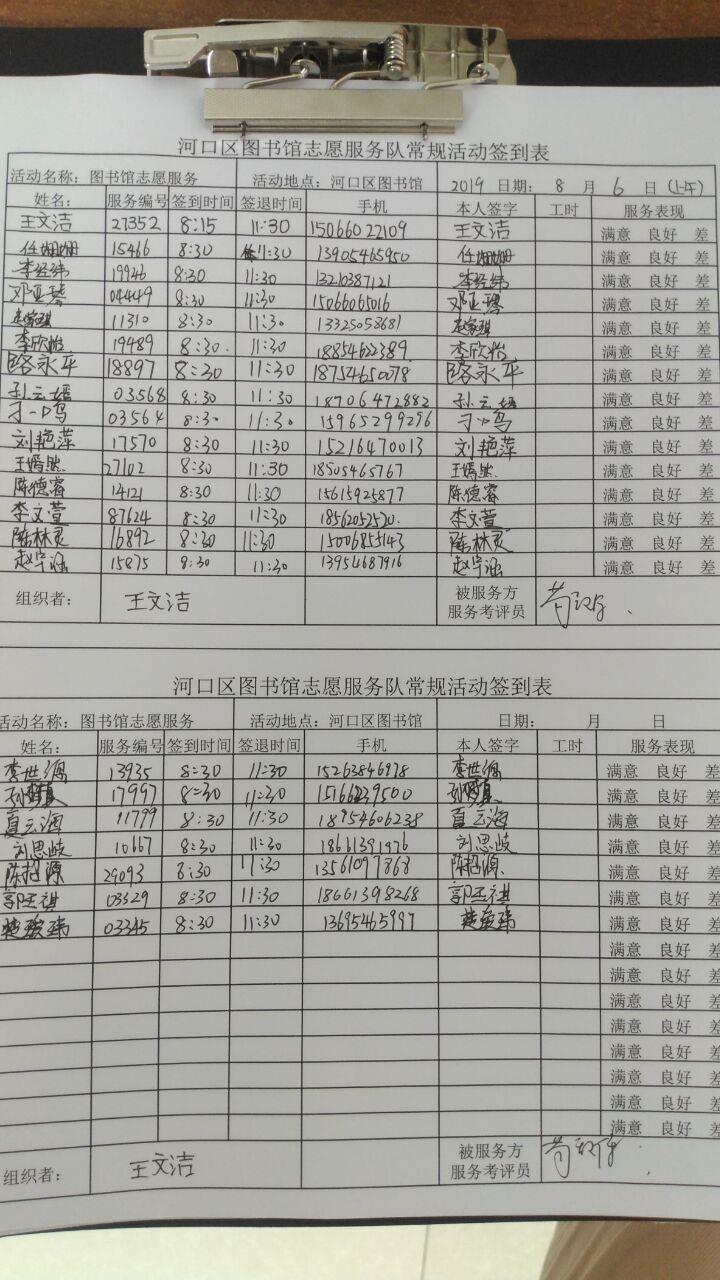 河口区图书馆志愿服务队常规活动签到表
活动名称：图书馆志愿服务 活动地点：河口区图书馆 2019 日期： 8 月 6 日 (上午)
姓名： 服务编号 签到时间 签退时间 手机 本人签字 工时 服务表现
王文洁 27352 8:15 11:30 15066022109 王文洁 满意 良好 差
任姗姗 15466 8:30 11:30 13905465950 任姗姗 满意 良好 差
李经纬 19946 8:30 11:30 13210387121 李经纬 满意 良好 差
邓亚琴 04449 8:30 11:30 15066065016 邓亚琴 满意 良好 差
11310 8:30 11:30 13325058681 满意 良好 差
李欣怡 19489 8:30 11:30 18854622389 李欣怡 满意 良好 差
路永平 18897 8:30 11:30 18754650078 路永平 满意 良好 差
孙云嬉 03568 8:30 11:30 18706472882 孙云嬉 满意 良好 差
刁一鸣 03564 8:30 11:30 15965299296 刁一鸣 满意 良好 差
刘艳萍 17570 8:30 11:30 15216470013 刘艳萍 满意 良好 差
王嫣然 27102 8:30 11:30 18505465767 王嫣然 满意 良好 差
陈德睿 14121 8:30 11:30 15615925877 陈德睿 满意 良好 差
李文萱 87624 8:30 11:30 18562052520 李文萱 满意 良好 差
陈林灵 16892 8:30 11:30 15006855143 陈林灵 满意 良好 差
赵宇涵 15875 9:30 11:30 13954687916 赵宇涵 满意 良好 差
组织者： 王文洁 被服务方
服务考评员
河口区图书馆志愿服务队常规活动签到表
活动名称：图书馆志愿服务 活动地点：河口区图书馆 日期： 月 日
姓名： 服务编号 签到时间 签退时间 手机 本人签字 工时 服务表现
13935 8:30 11:30 15263846978 满意 良好 差
17997 8:30 11:30 15166239500 满意 良好 差
夏云海 11799 8:30 11:30 18954606238 夏云海 满意 良好 差
刘思岐 10667 8:30 11:30 18661391976 刘思岐 满意 良好 差
陈招源 29093 8:30 11:30 13561097868 陈招源 满意 良好 差
郭丕祺 03329 8:30 11:30 18661398268 郭丕祺 满意 良好 差
03345 8:30 11:30 13695465997 满意 良好 差
满意 良好 差
满意 良好 差
满意 良好 差
满意 良好 差
满意 良好 差
满意 良好 差
满意 良好 差
满意 良好 差
组织者： 王文洁 被服务方
服务考评员